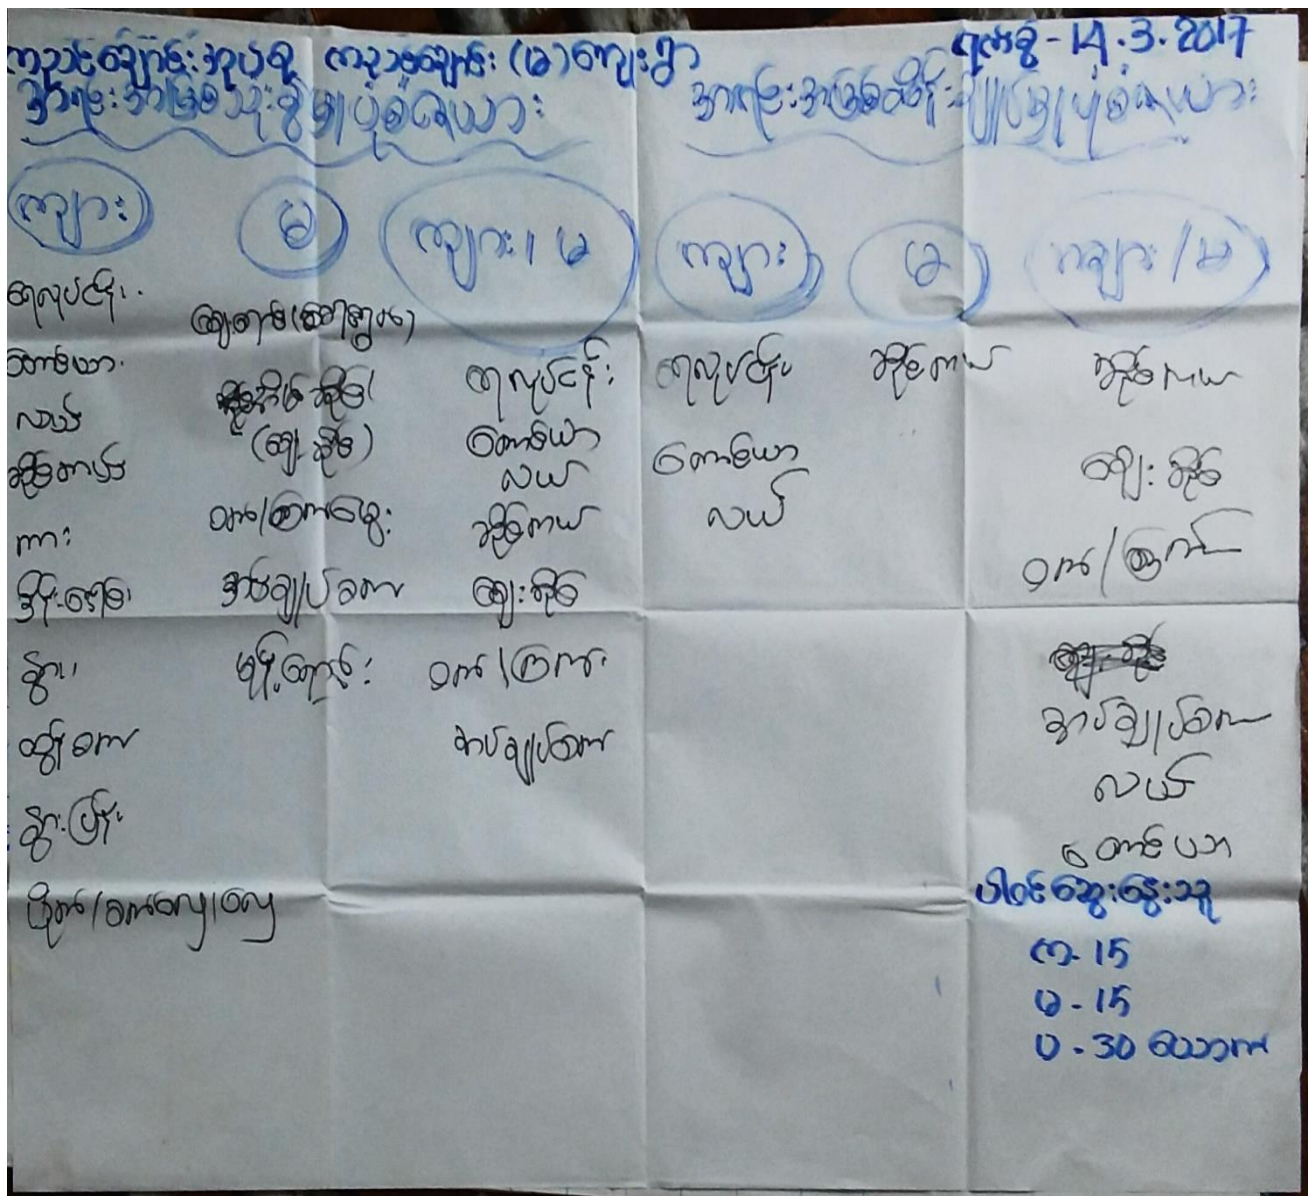 ကညင်ချောင်းအုပ်စု ကညင်ချောင်း (မ) ကျေးရွာ
ရက်စွဲ - 14.3.2017
အရင်းအမြစ်သုံးစွဲမှုပုံစံဇယား
အရင်းအမြစ်ထိန်းချုပ်မှုပုံစံဇယား
ကျား
မ
ကျား/မ
ကျား
မ
ကျား/မ
ရေလုပ်ငန်း
တောင်ယာ
လယ်
ဆိုင်ကယ်
ကား
နွား
ထွန်စက်
ဈေးဆိုင်
ဝက်/ကြက်မွေး
အပ်ချုပ်စက်
ရေလုပ်ငန်း
တောင်ယာ
လယ်
ဆိုင်ကယ်
ဈေးဆိုင်
ဝက်/ကြက်
အပ်ချုပ်စက်
ရေလုပ်ငန်း
တောင်ယာ
လယ်
ဆိုင်ကယ်
ဆိုင်ကယ်
ဈေးဆိုင်
ဝက်/ကြက်
အပ်ချုပ်စက်
လယ်
တောင်ယာ
ပါဝင်ဆွေးနွေးသူ
က - 15
မ - 15
ပ - 30 ယောက်